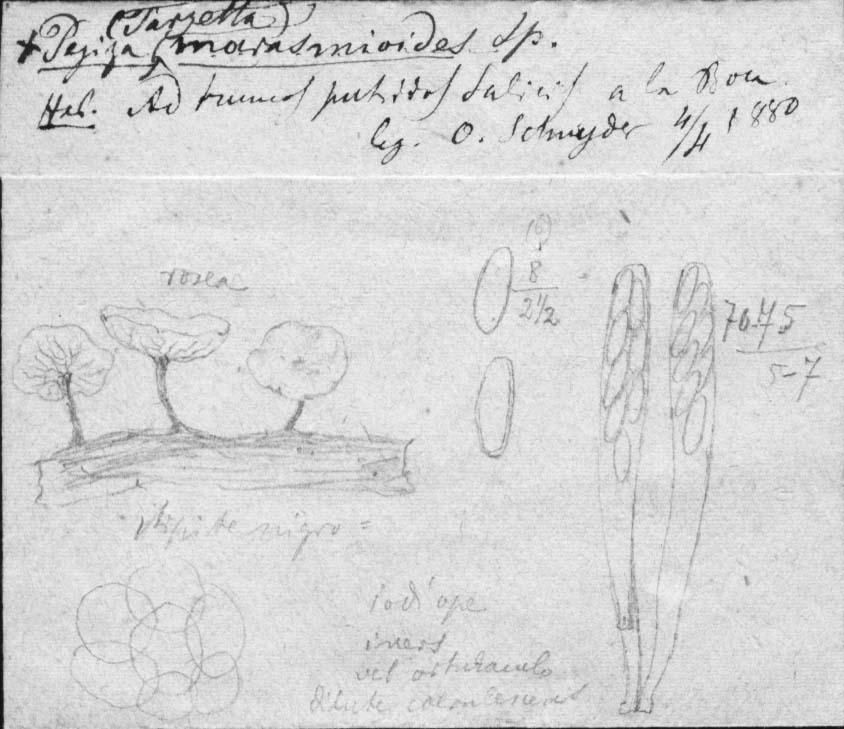 (Tarzetta)
+ Peziza marasmioides Sp.
Hab. Ad truncos putridos Salicis a la Boca
leg. O. Schnyder 4/4 1880
rosea
(6)
8
2½
70-75
5-7
stipite nigro =
iodi ope
iners
vel obturaculo
dilute coerulescens